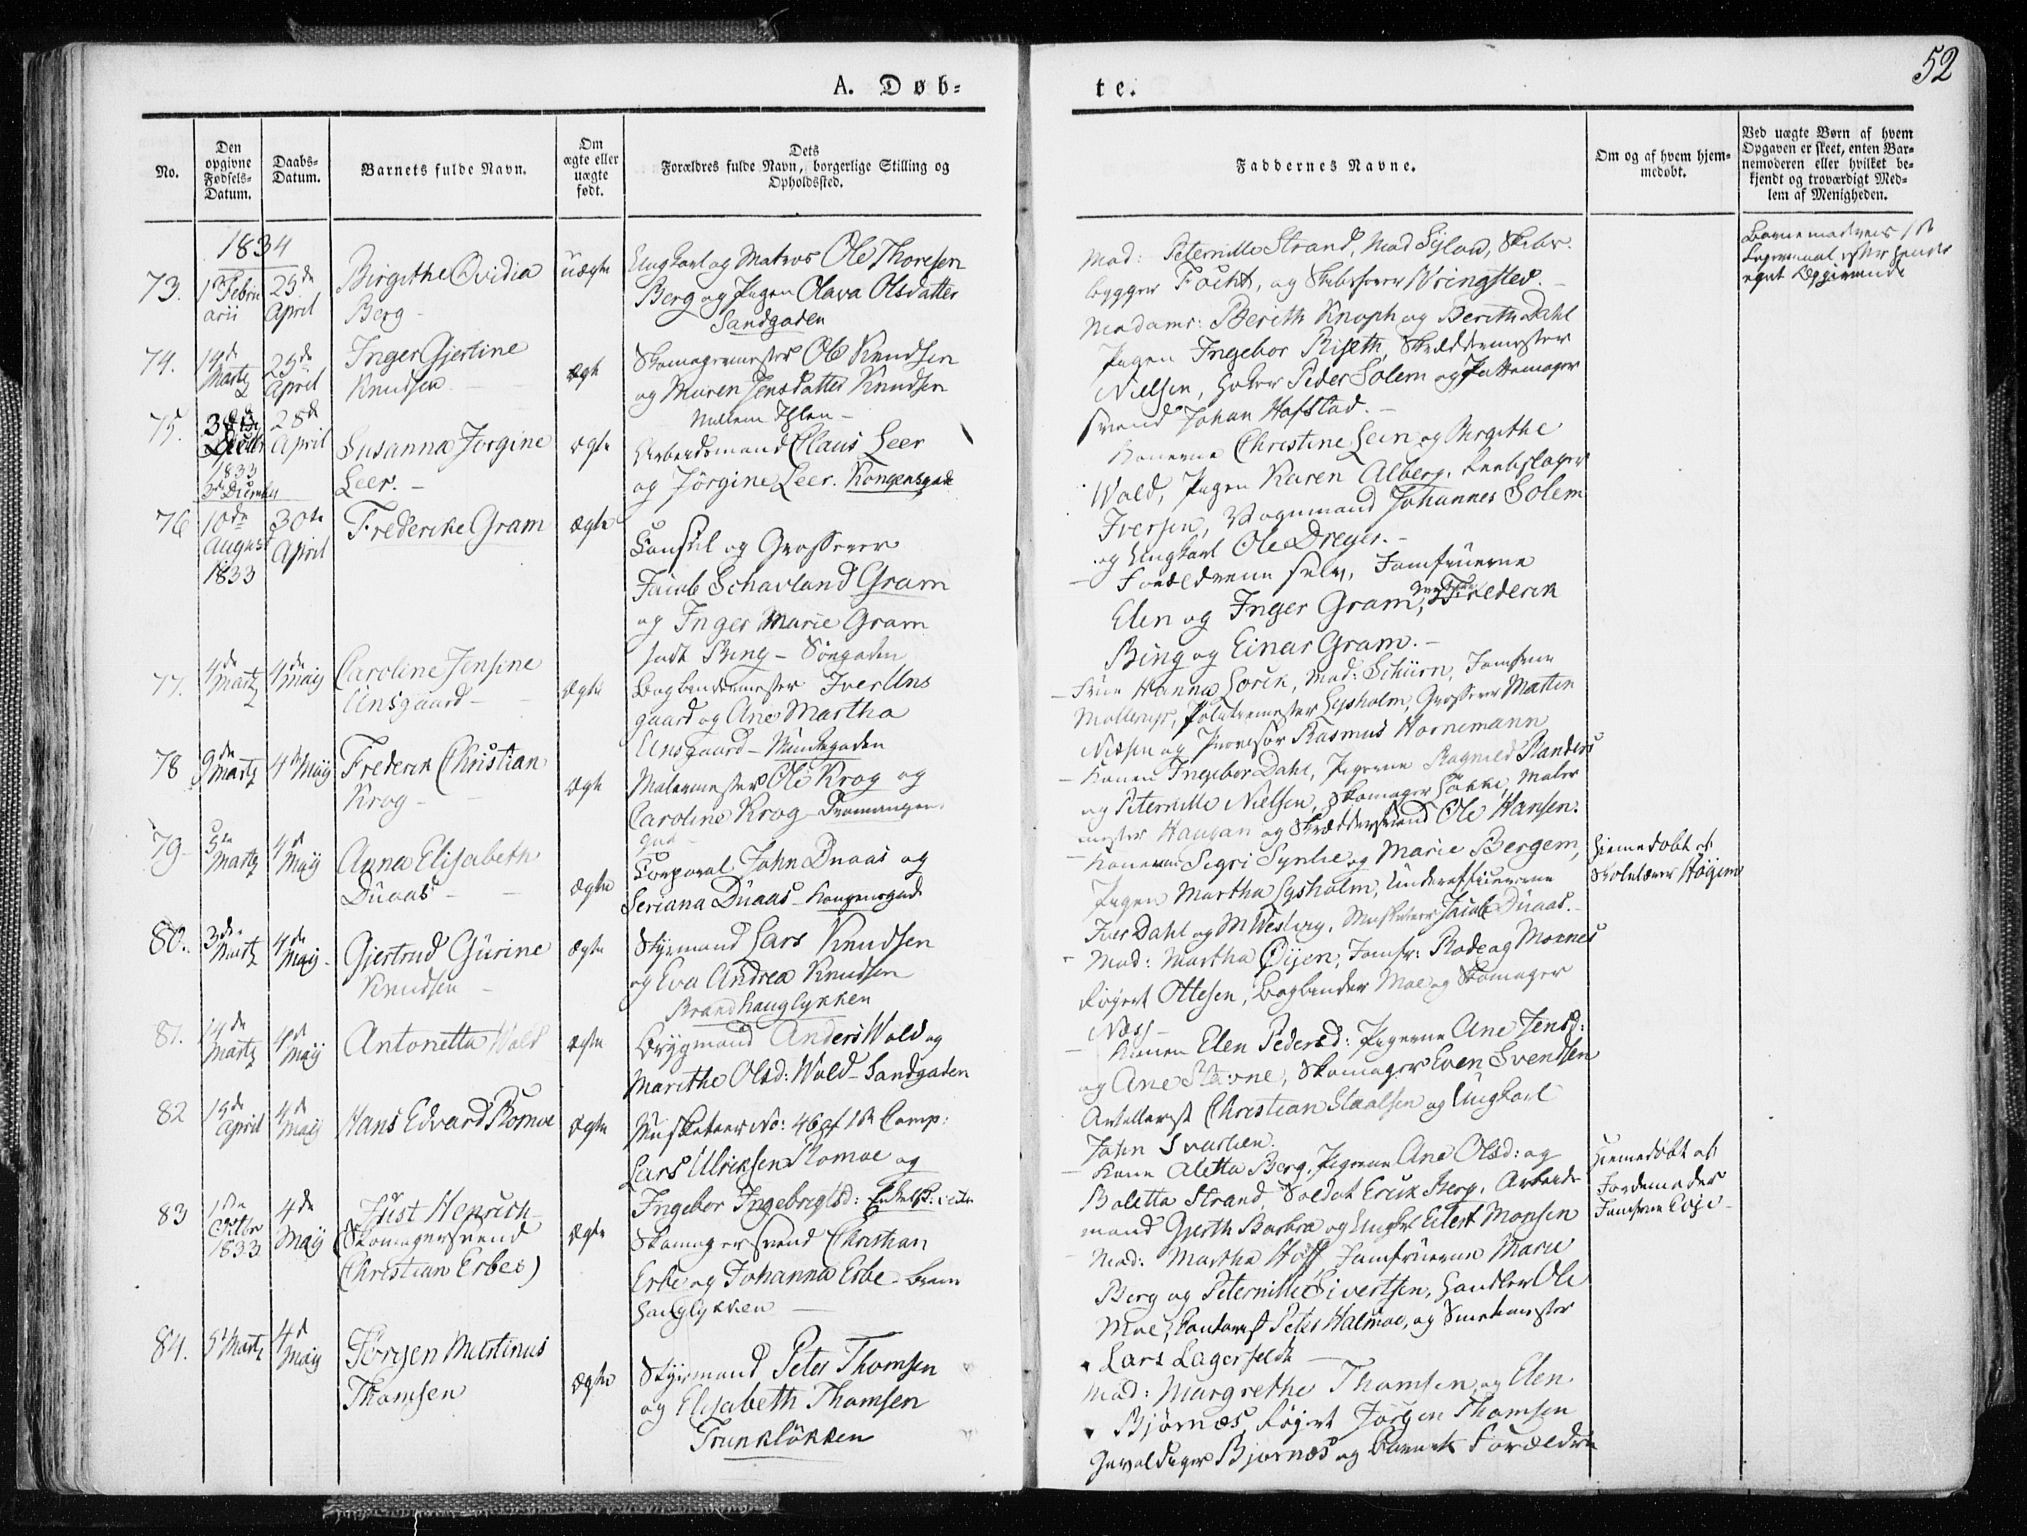 52
A. Døb-
te.
No.
Den opgivne Fødsels-Datum.
Daabs-Datum.
Barnets fulde Navn.
Om ægte eller uægte født.
Dets Forældres fulde Navn, borgerlige Stilling og Opholdssted.
Faddernes Navne.
Om og af hvem hjem-
medøbt.
Ved uægte Børn af hvem
Opgaven er skeet, enten Bar-
nemoderen eller hvilket be-
kjendt og troværdigt Med-
lem af Menigheden.
1834
73.
1 Febru
arii
25de
April
Birgithe Ovidia
Berg
uægte
Ungkarl og Matros Ole Thoresen
Berg og Pigen Olava Olsdatter
Sandgaden
Mad: Peternille Strand, Mad
Focht, og
eget Opgivende
74.
14de
Martz
25de
April
Inger Gjertine
Knudsen
ægte
Skomagermester Ole Knudsen
og Maren Jensdatter Knudsen
Mellem Ihlen
Madams: Berith Knoph og Berith Dahl
Pigen Ingebor Riseth, Skræddermester
Nielsen, Peder Solem og Pottemager
svend Johan Hofstad.
75.
1833
28de
April
Susanna Jørgine
Leer.
ægte
Arbeidsmand Claus Leer
og Jørgine Leer. Kongensgade
Konerne Christine Lein og Birgithe
Wold, Pigen Karen Alberg, Reebslager
Iversen, Vognmand Johannes Solem
og Ungkarl Ole Dreyer.
76
10de
August
1833
30te
April
Frederike Gram
ægte
Consul og Grosserer
Jacob Schavland Gram
og Inger Marie Gram
født Bing - Søegaden
Forældrene selv, Jomfruerne
Elen og Inger Gram, Frederik
Bing og Einar Gram.
77.
4de
Martz
4de
Maij
Caroline Jensine
Unsgaard
ægte
Bogbindermester Iver Uns
gaard og Ane Martha
Unsgaard - Munkegaden
Frue Hanna Lorck, Mad: Schiørn, Jomfrue
Møllerup, Politiemester Lysholm, Grosserer Martin
Nissen og Provisor Rasmus Hornemann
78
9de
Martz
4de Maij
Frederik Christian
Krog
ægte
Malermester Ole Krog og
Caroline Krog
Konen Ingebor Dahl, Pigerne Ragnild Randers
og Peternille Nielsen, Skomager Løkke, Maler
mester Haugan og Skræddersvend Ole Hansen.
79
5te
Martz
4de
Maij
Anna Elisabeth
Duaas
ægte
Corporal John Duaas og
Seriana Duaas - Kongensgade
Konerne Sigri og Marie Bergem,
Pigen Martha Lysholm, Underofficererne
Iver Dahl og M Westvig, Musketeer Jacob Duaas.
Hiemedøbt af
Skolelærer Høyem
80.
3de
Martz
4de
Maij
Gjertrud Gurine
Knudsen
ægte
Styrmand Lars Knudsen
og Eva Andrea Knudsen
Brandhauglykken
Mad: Martha Øyen, Jomfr: Rode og Monnes
Røgert Ottesen, Bogbinder Moe og Skomager
Næss
81.
14de
Martz
4de
Maij
Antonetta Wold
ægte
Brygmand Anders Wold og
Marithe Olsd: Wold - Sandgaden
Konen Elen Pedersd: Pigerne Ane Jensd:
og Ane Stavne, Skomager Even Svendsen
Artillerist Christian Staalsen og Ungkarl
John
82
15de
April
4de
Maij
Hans Edvard Romoe
ægte
Musketeer No: 46 af 1te Comp:
Lars Ulriksen Romoe og
Ingebor Ingebrigtsd:
Kone Aletta Berg, Pigerne Ane Olsd: og
Boletta Strand, Soldat Erik Berg, Arbeids
mand Gjerth Barbra og Ungkr Eilert Monsen
Hiemedøbt af
Jordemoder
Jomfrue
83
1ste
Octbr
1833
4de
Maij
Just Henrich
(Skomagersvend
Christian Erbes)
ægte
Skomagersvend Christian
Erbe og Johanna Erbe - Bran
hauglykken
Mad: Martha Hoff, Jomfruerne Marie
Berg og Peternille Sivertsen, Handler Ole
Moe, Contorist Peter Halmoe, og Smedemester
Lars Lagerfeldt
84.
5te Martz
4de
Maij
Jørgen Martinus
Thomsen
ægte
Styrmand Peter Thomsen
og Elisabeth Thomsen
Trunkløkken
Mad: Margrethe Thomsen og Elen
Bjørnæs, Røgert Jørgen Thomsen
Bjørnæs og Barnets Forældre